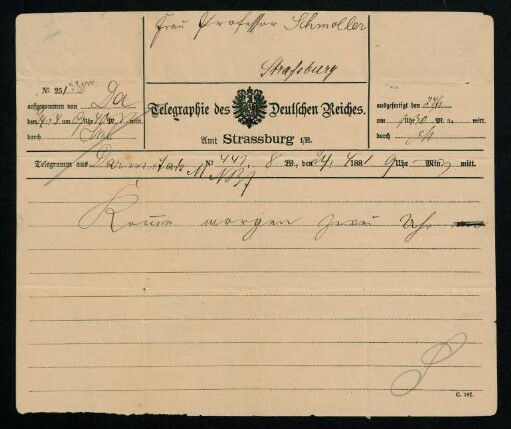 Frau Professor Schmoller
Strassburg
№ 251
aufgenommen von Da
den 24/4 um Uhr M. mitt.
durch
Telegraphie des Deutschen Reiches.
Amt Strassburg i/E.
ausgefertigt den 24/4
um Uhr 30 M. mitt.
durch
Telegramm aus Darmstadt № 447, 8 W., den 24/4 1881 9 Uhr Min mitt.
Komme morgen zwei Uhr
C. 187.